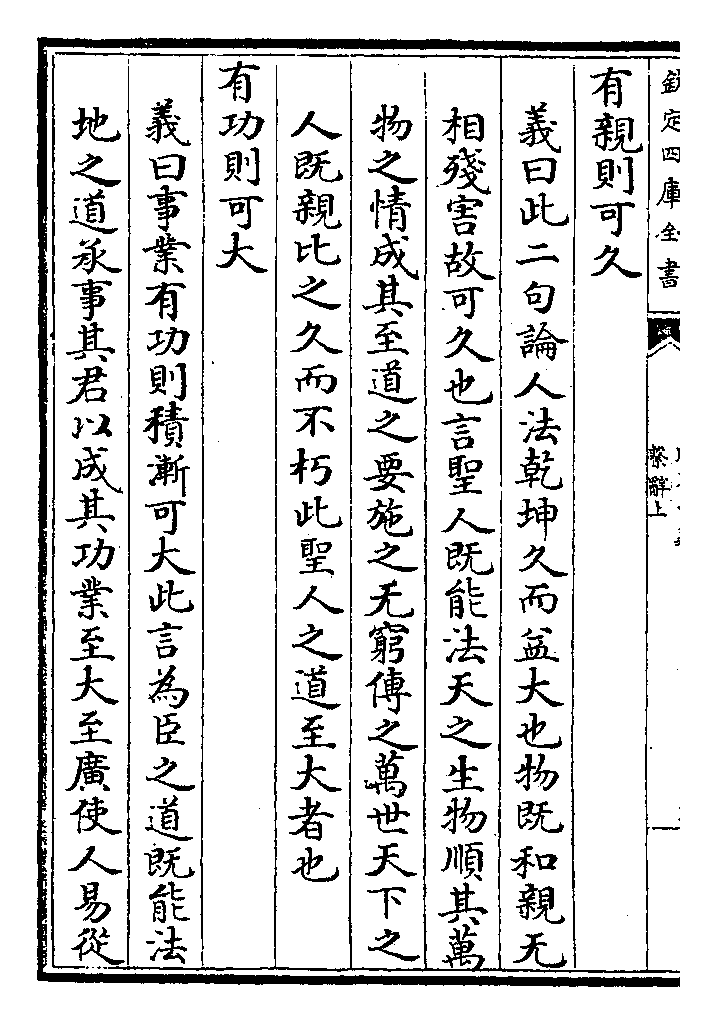 欽定四庫全書
繫辭上
有親則可久
義曰此二句論人法乾坤久而益大也物既和親无
相殘害故可久也言聖人既能法天之生物順其萬
物之情成其至道之要施之无窮傳之萬世天下之
人既親比之久而不朽此聖人之道至大者也
有功則可大
義曰事業有功則積漸可大此言為臣之道既能法
地之道承事其君以成其功業至大至廣使人易從